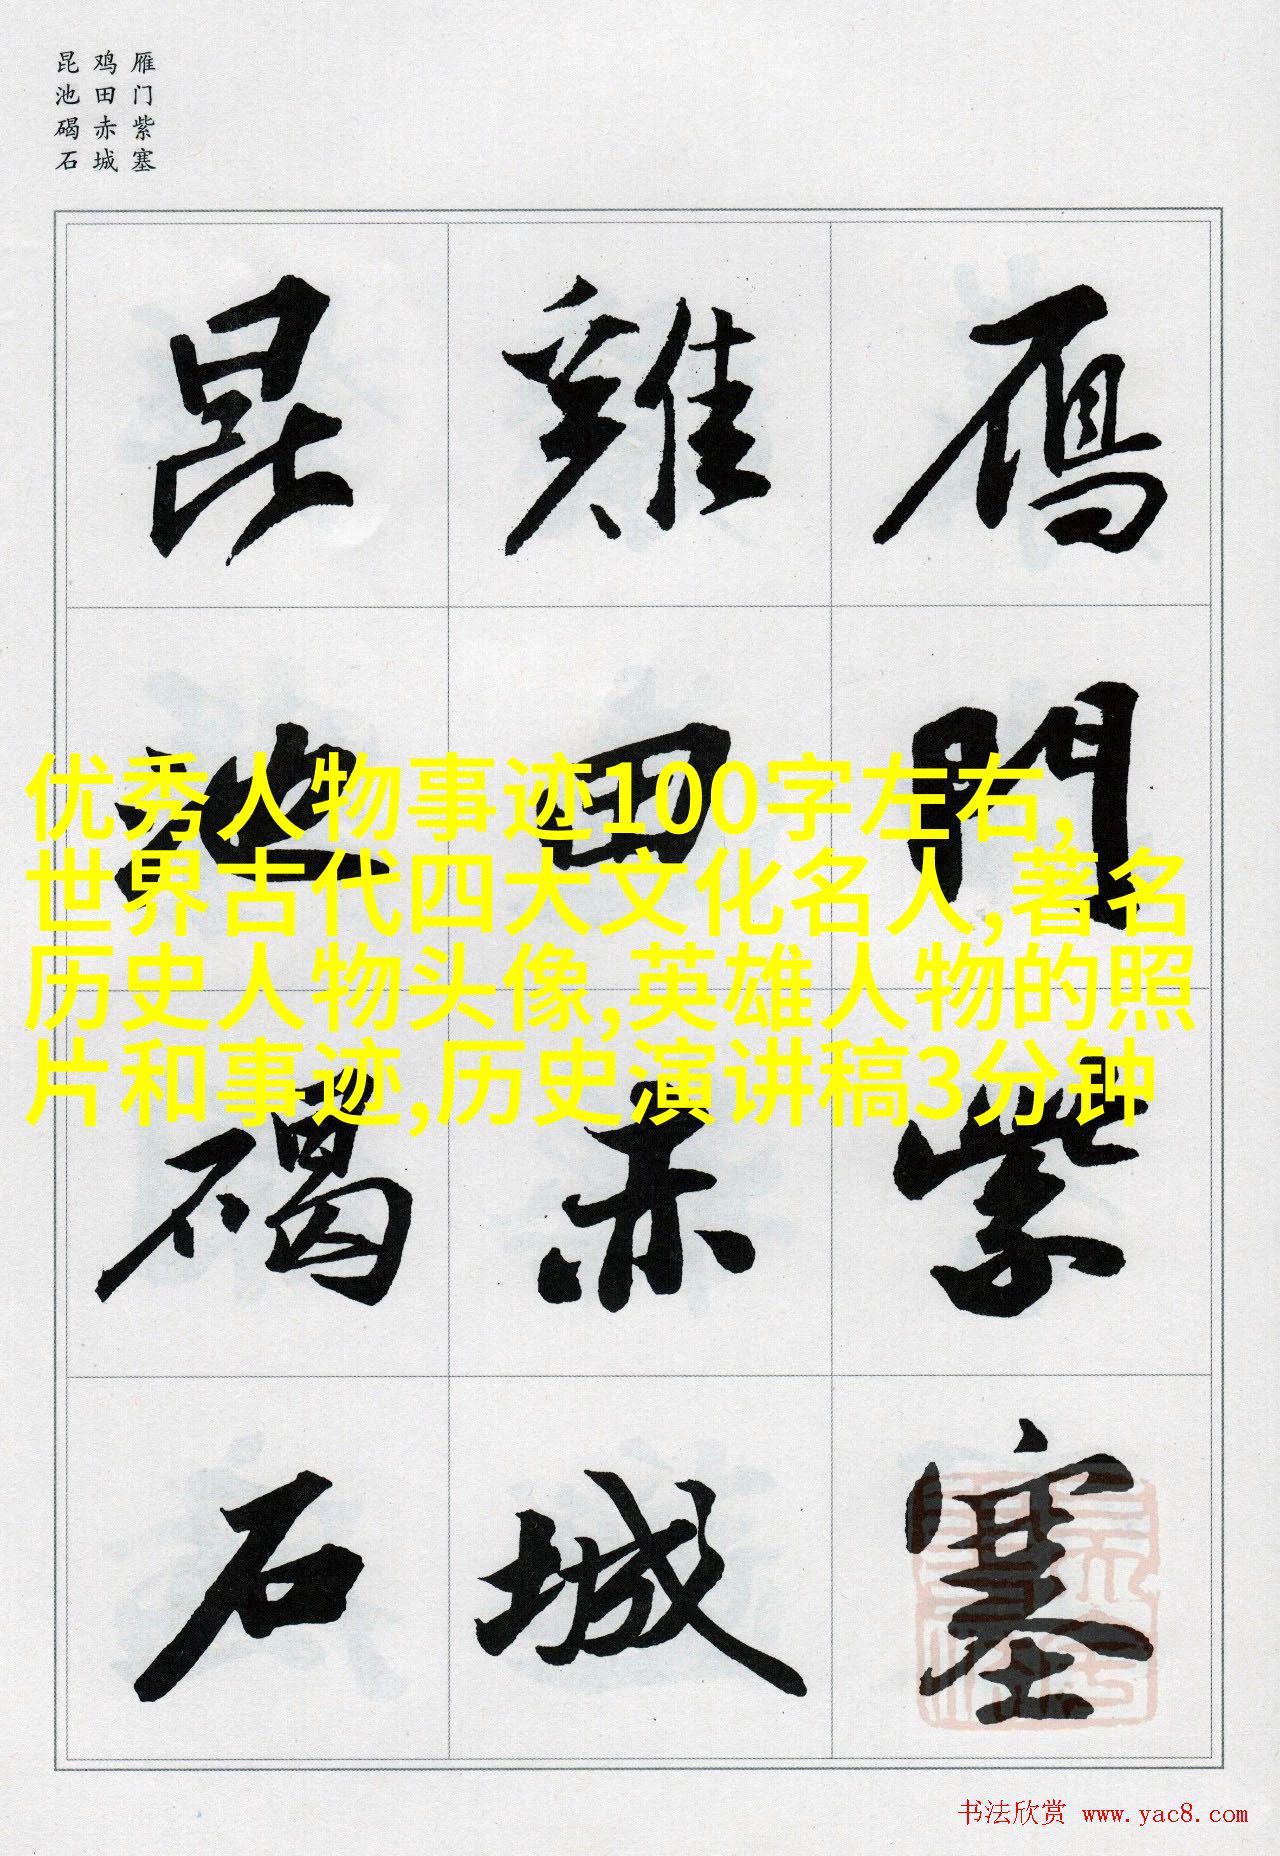 雁门紫塞
鸡田赤城
昆池碣石
雁門紫塞
雞田赤城
昆池碣石
优秀人物事迹100字左右,
世界古代四大文化名人,著名
历史人物头像,英雄人物的照
片和事迹,历史演讲稿3分钟
书法欣赏 www.yac8.com